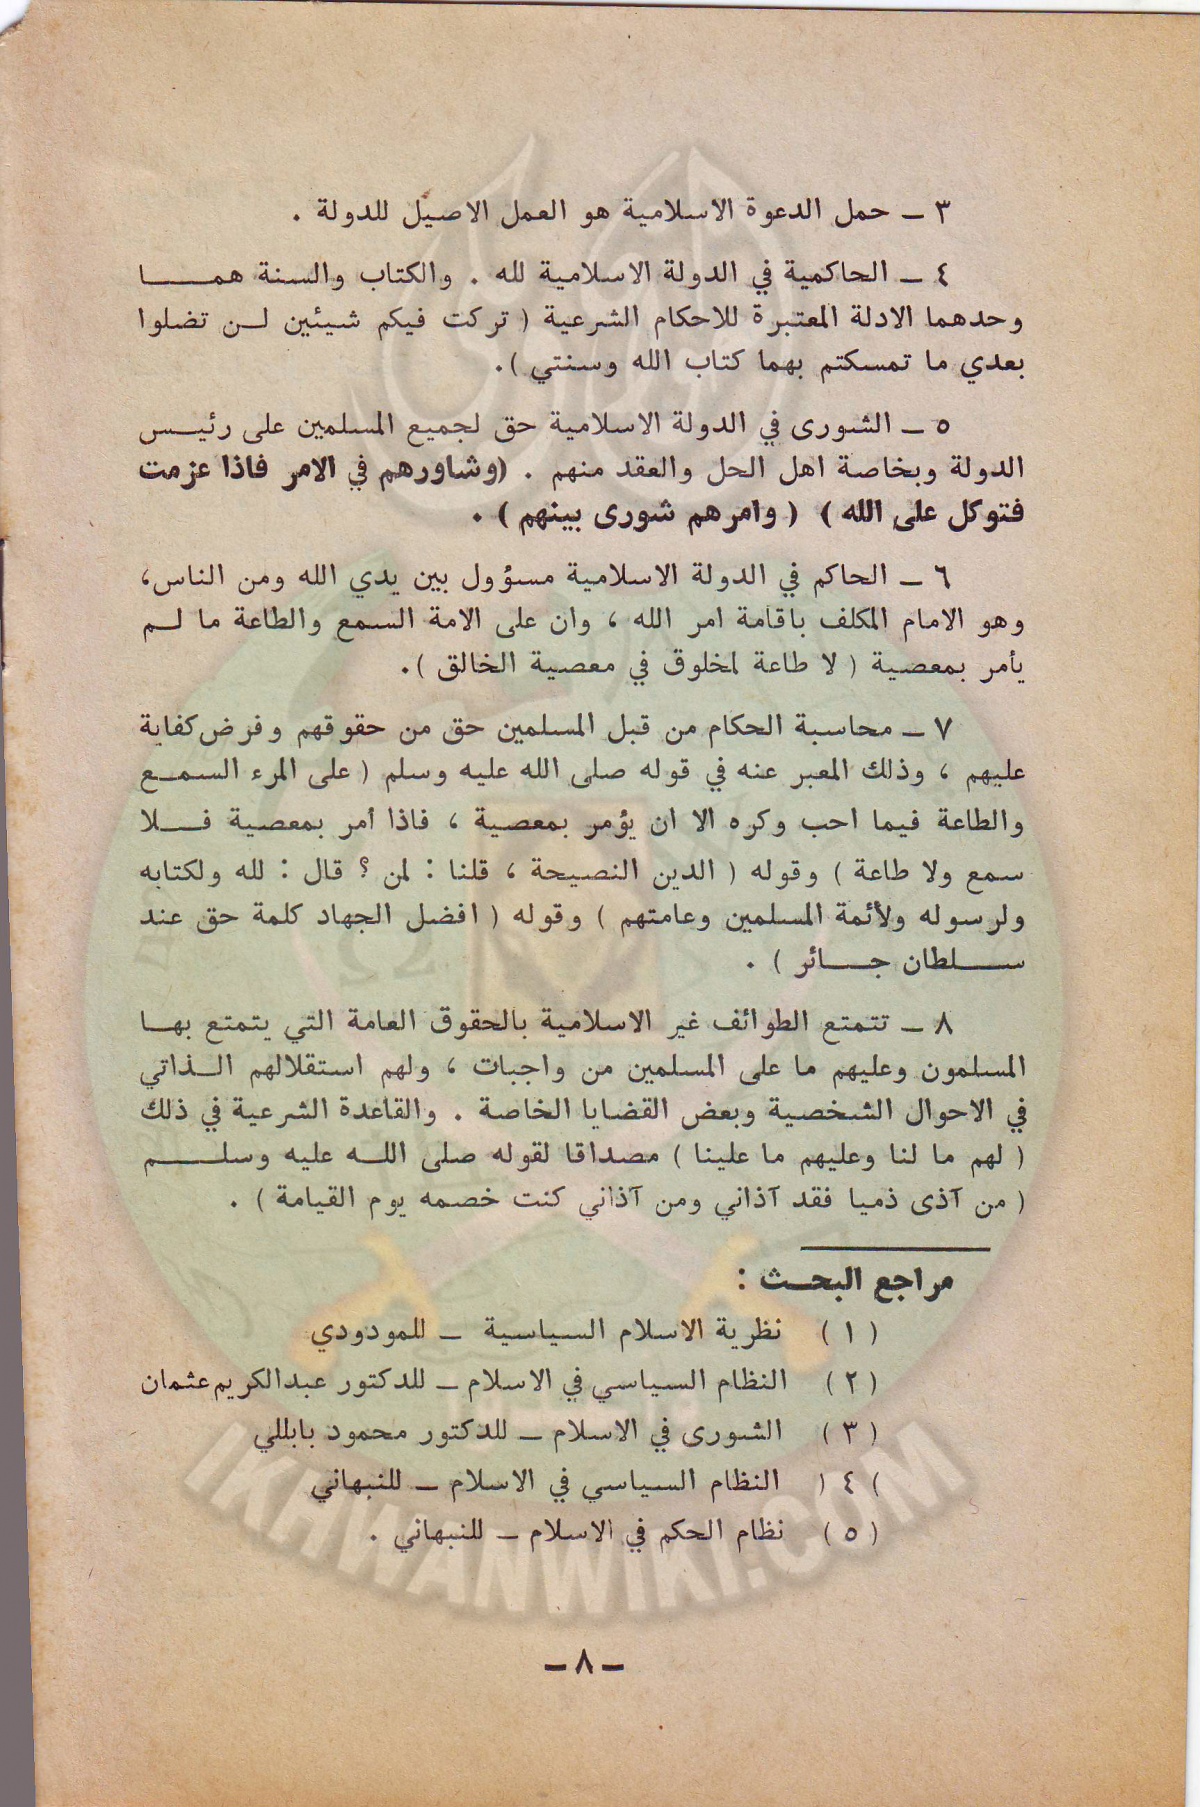 ٣ ـ حمل الدعوة الاسلامية هو العمل الاصيل للدولة .
٤ ـ الحاكمية في الدولة الاسلامية لله . والكتاب والسنة همـــا
وحدهما الادلة المعتبرة للاحكام الشرعية ( تركت فيكم شيئين لـن تضلوا
بعدي ما تمسكتم بهما كتاب الله وسنتي ).
٥ ـ الشورى في الدولة الاسلامية حق لجميع المسلمين على رئيـس
الدولة وبخاصة اهل الحل والعقد منهم . (وشاورهم في الامر فاذا عزمت
فتوكل على الله ) ( وامرهم شورى بينهم ) .
٦ ـ الحاكم في الدولة الاسلامية مسؤول بين يدي الله ومن الناس،
وهو الامام المكلف باقامة امر الله ، وان على الامة السمع والطاعة ما لـم
يأمر بمعصية ( لا طاعة لمخلوق في معصية الخالق ).
٧ ـ محاسبة الحكام من قبل المسلمين حق من حقوقهم وفرض كفاية
عليهم ، وذلك المعبر عنه في قوله صلى الله عليه وسلم ( على المرء السمـع
والطاعة فيما احب وكره الا ان يؤمر بمعصية ، فاذا أمر بمعصية فـــلا
سمع ولا طاعة ) وقوله ( الدين النصيحة ، قلنا : لمن ؟ قال : لله ولكتابه
ولرسوله ولأئمة المسلمين وعامتهم ) وقوله ( افضل الجهاد كلمة حق عند
ســـلطان جـــائر ) .
٨ ـ تتمتع الطوائف غير الاسلامية بالحقوق العامة التي يتمتع بهـا
المسلمون وعليهم ما على المسلمين من واجبات ، ولهم استقلالهم الـذاتي
في الاحوال الشخصية وبعض القضايا الخاصة . والقاعدة الشرعية في ذلك
( لهم ما لنا وعليهم ما علينا ) مصداقا لقوله صلى اللـه عليه وسلــم
( من آذى ذميا فقد آذاني ومن آذاني كنت خصمه يوم القيامة ) .
مراجع البحـث :
( ١ ) نظرية الاسلام السياسية ـ للمودودي
( ٢ ) النظام السياسي في الاسلام ـ للدكتور عبدالكريم عثمان
( ٣ ) الشورى في الاسلام ـ للدكتور محمود بابللي
) ٤ ( النظام السياسي في الاسلام ـ للنبهاني
( ٥ ) نظام الحكم في الاسلام ـ للنبهاني .
IKHWANWIKI.COM
ـ ٨ ـ